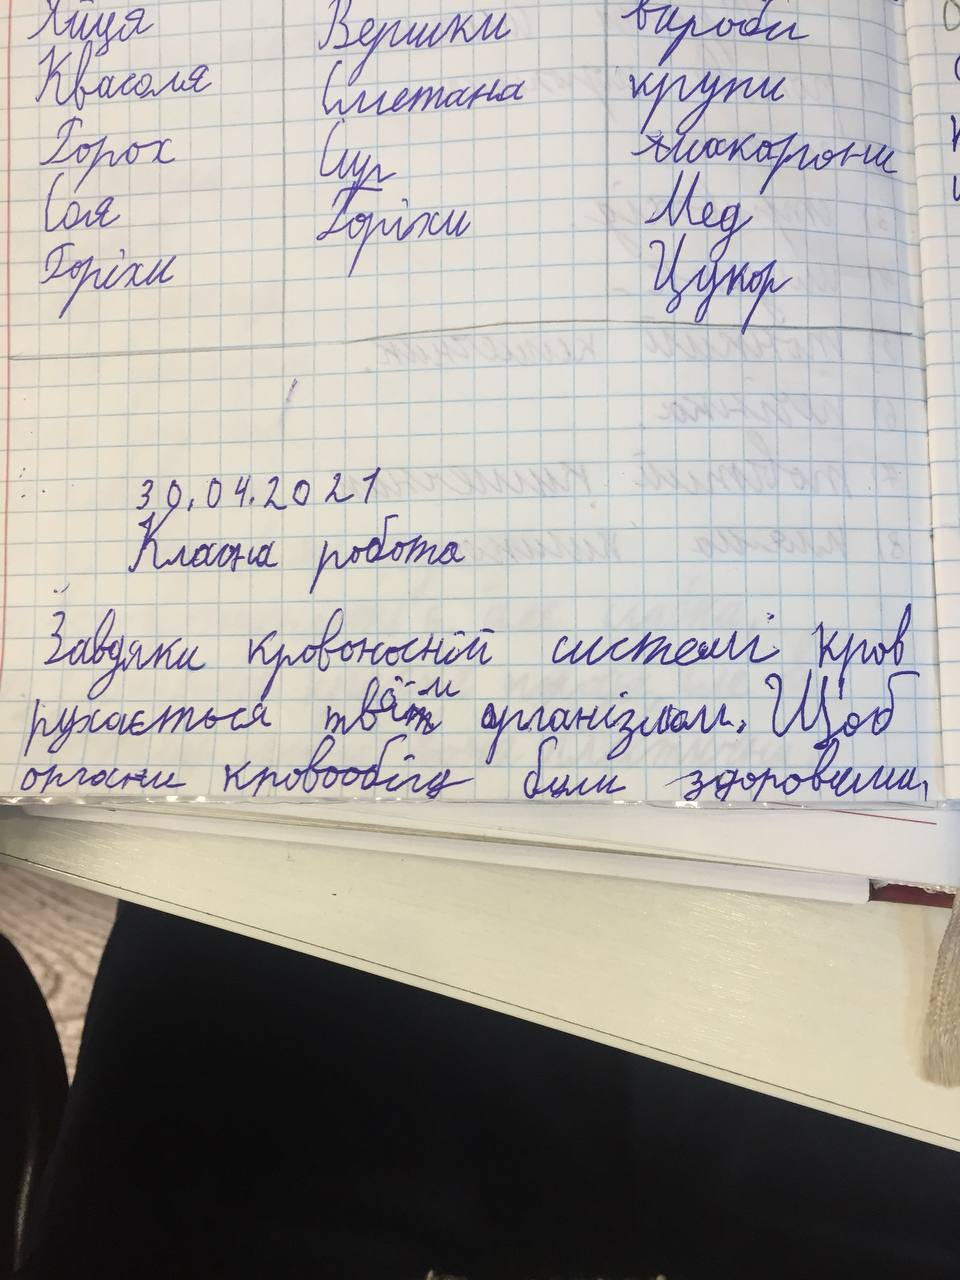 Яйця Вершки вироби
Квасоля Сметана крупи
Горох Сир макарони
Соя Горіхи Мед
Горіхи Цукор
30.04.2021
Класна робота
Завдяки кровоносній системі кров
рухається твоїм організмом. Щоб
органи кровообігу були здоровими,